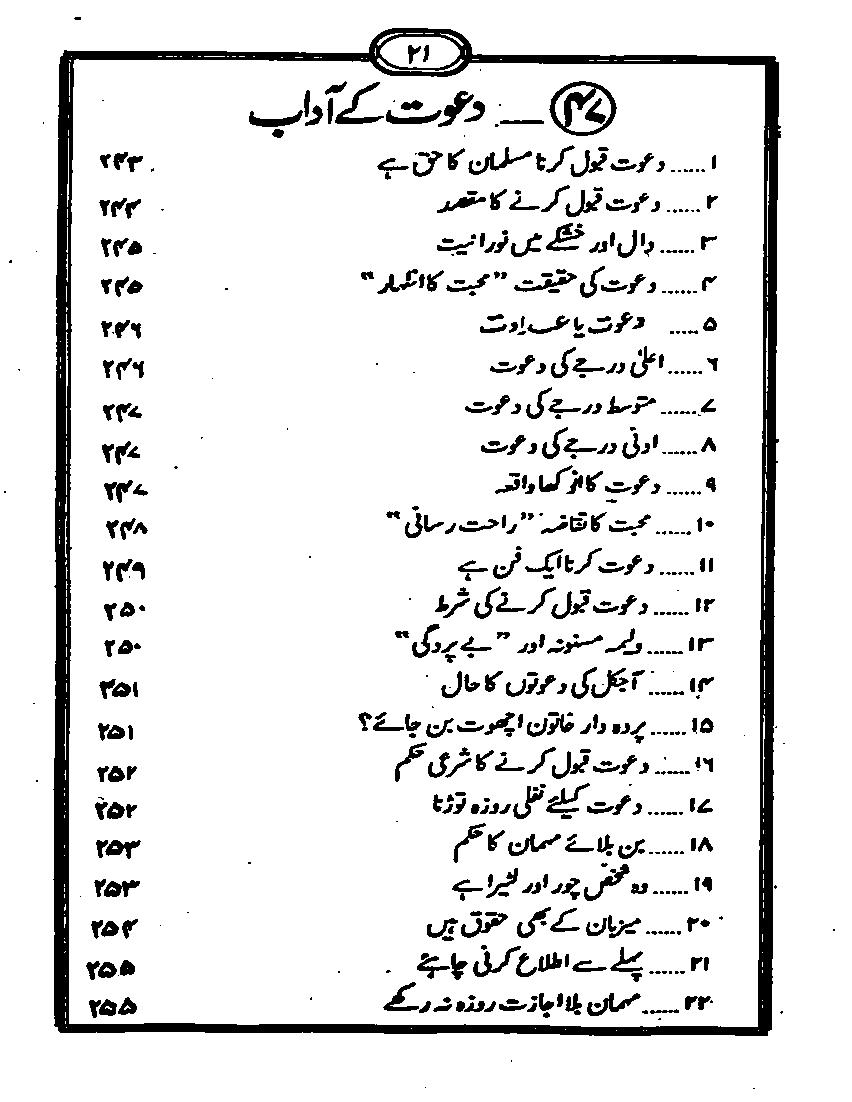 ۲۱
۴۷ — دعوت کے آداب
۱...... دعوت قبول کرنا مسلمان کا حق ہے ۲۴۳
۲...... دعوت قبول کرنے کا مقصد ۲۴۴
۳...... دال اور خشکے میں نورانیت ۲۴۵
۴...... دعوت کی حقیقت "محبت کا اظہار" ۲۴۵
۵..... دعوت یا عداوت ۲۴۶
۶...... اعلیٰ درجے کی دعوت ۲۴۶
۷...... متوسط درجے کی دعوت ۲۴۷
۸...... ادنیٰ درجے کی دعوت ۲۴۷
۹...... دعوت کا انوکھا واقعہ ۲۴۷
۱۰...... محبت کا تقاضہ "راحت رسانی" ۲۴۸
۱۱...... دعوت کرنا ایک فن ہے ۲۴۹
۱۲...... دعوت قبول کرنے کی شرط ۲۵۰
۱۳...... ولیمہ مسنونہ اور "بے پردگی" ۲۵۰
۱۴...... آجکل کی دعوتوں کا حال ۲۵۱
۱۵...... پردہ دار خاتون اچھوت بن جائے؟ ۲۵۱
۱۶...... دعوت قبول کرنے کا شرعی حکم ۲۵۲
۱۷...... دعوت کیلئے نفلی روزہ توڑنا ۲۵۲
۱۸...... بن بلائے مہمان کا حکم ۲۵۳
۱۹...... وہ شخص چور اور لٹیرا ہے ۲۵۳
۲۰...... میزبان کے بھی حقوق ہیں ۲۵۴
۲۱...... پہلے سے اطلاع کرنی چاہئے ۲۵۵
۲۲...... مہمان بلا اجازت روزہ نہ رکھے ۲۵۵